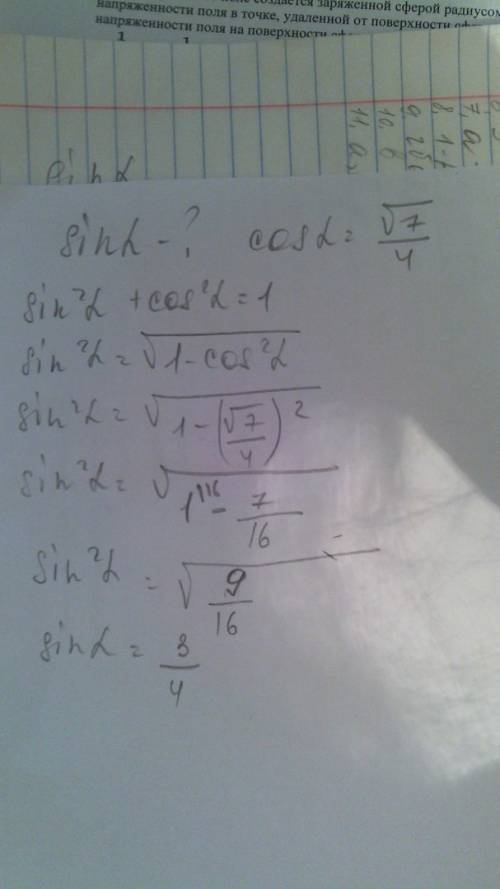 создается заряженной сферой радиусом
напряженности поля в точке, удаленной от поверхности
напряженности поля на поверхности
1
7. а.
8. 1-
9.
10. в
11. а
sin α
sin α - ? cos α = √7/4
sin²α + cos²α = 1
sin²α = √(1 - cos²α)
sin²α = √(1 - (√7/4)²)
sin²α = √(1^{/16} - 7/16) =
sin²α = √(9/16)
sin α = 3/4